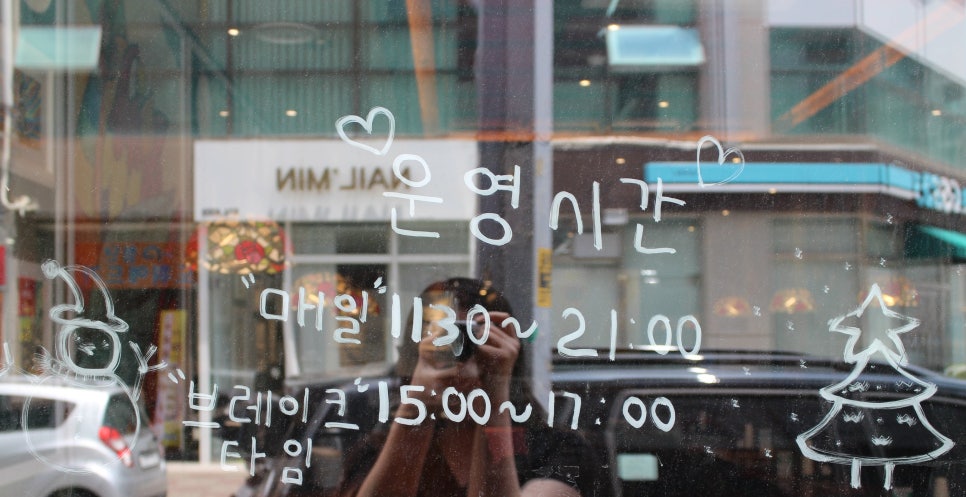 NAIL'MIN
운영시간
"매일" 1130~21:00
"브레이크" 15:00~17:00
타임